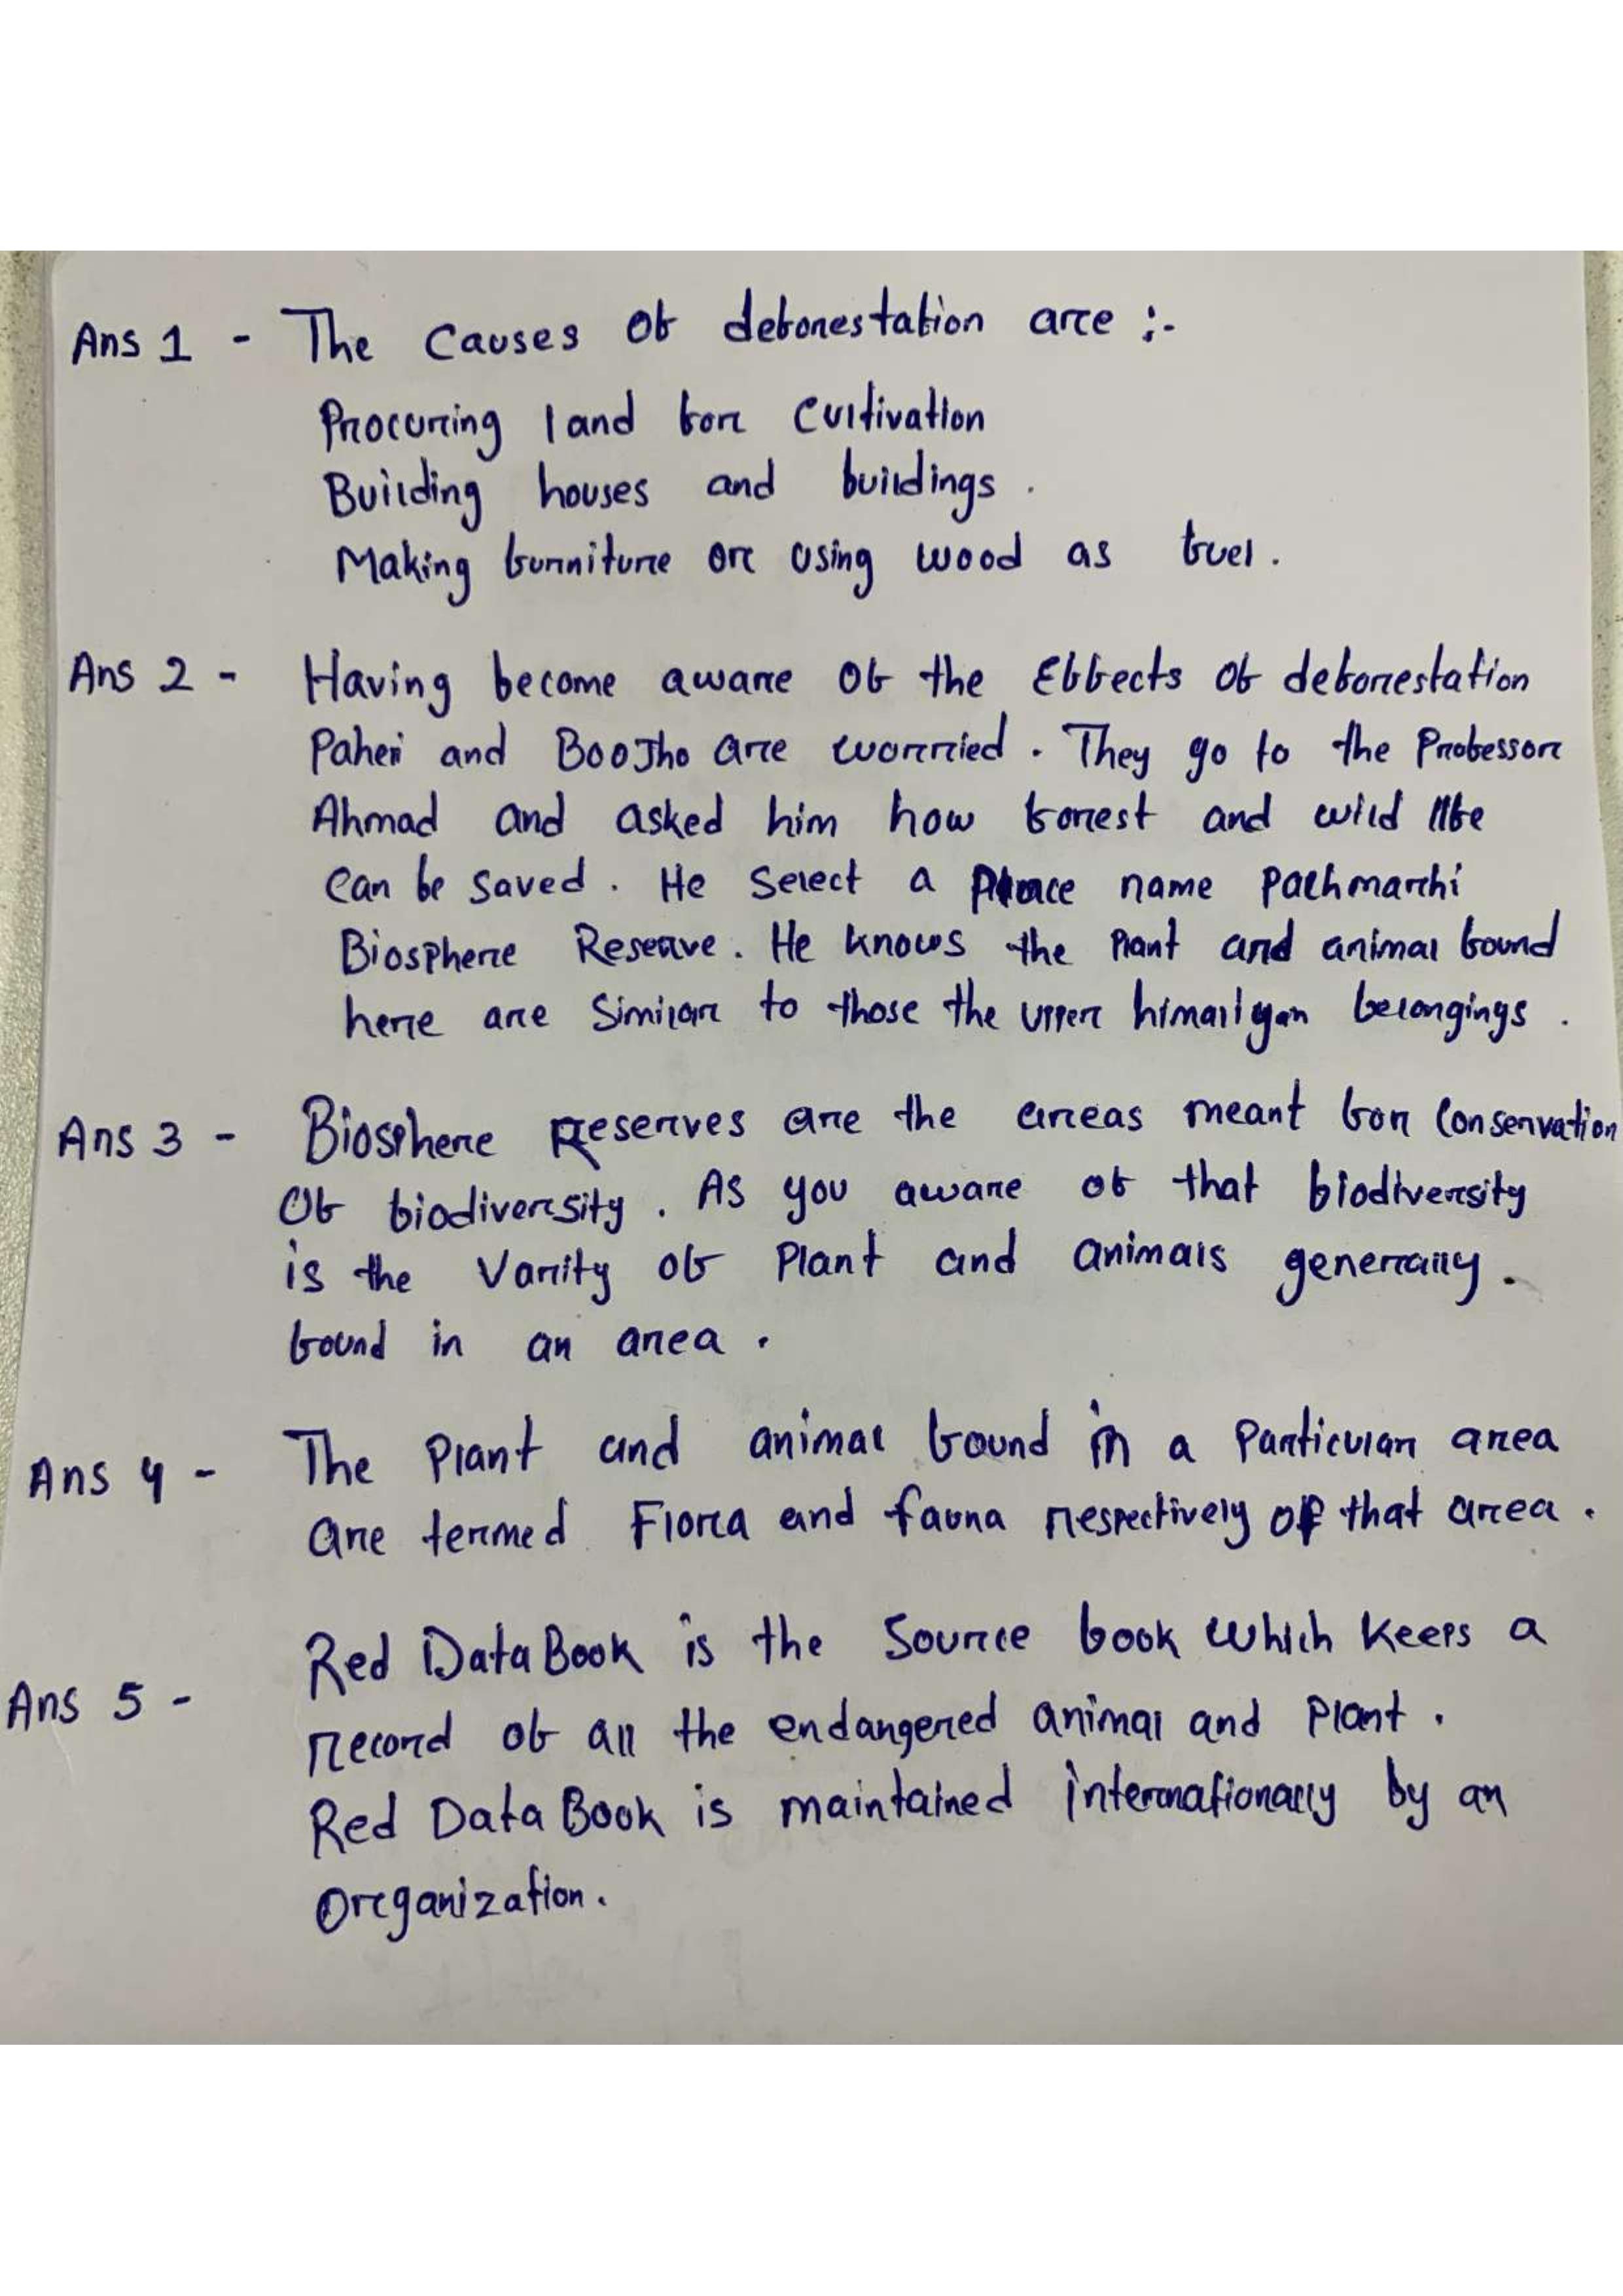 Ans 1 - The Causes of deforestation are :-
Procuring land for Cultivation
Building houses and buildings .
Making furniture or using wood as fuel .
Ans 2 - Having become aware of the Effects of deforestation
Paheli and Boojho are worried . They go to the Professor
Ahmad and asked him how forest and wild life
can be saved . He Select a Place name Pachmarhi
Biosphere Reserve . He knows the Plant and animal found
here are Similar to those the upper himalyan belongings .
Ans 3 - Biosphere Reserves are the areas meant for Conservation
Of biodiversity . As you aware of that biodiversity
is the Varity of Plant and animals generally .
found in an area .
Ans 4 - The Plant and animal found in a Particular area
are termed Flora and fauna respectively of that area .
Ans 5 - Red Data Book is the Source book which keeps a
record of all the endangered animal and Plant .
Red Data Book is maintained internationally by an
Organization .